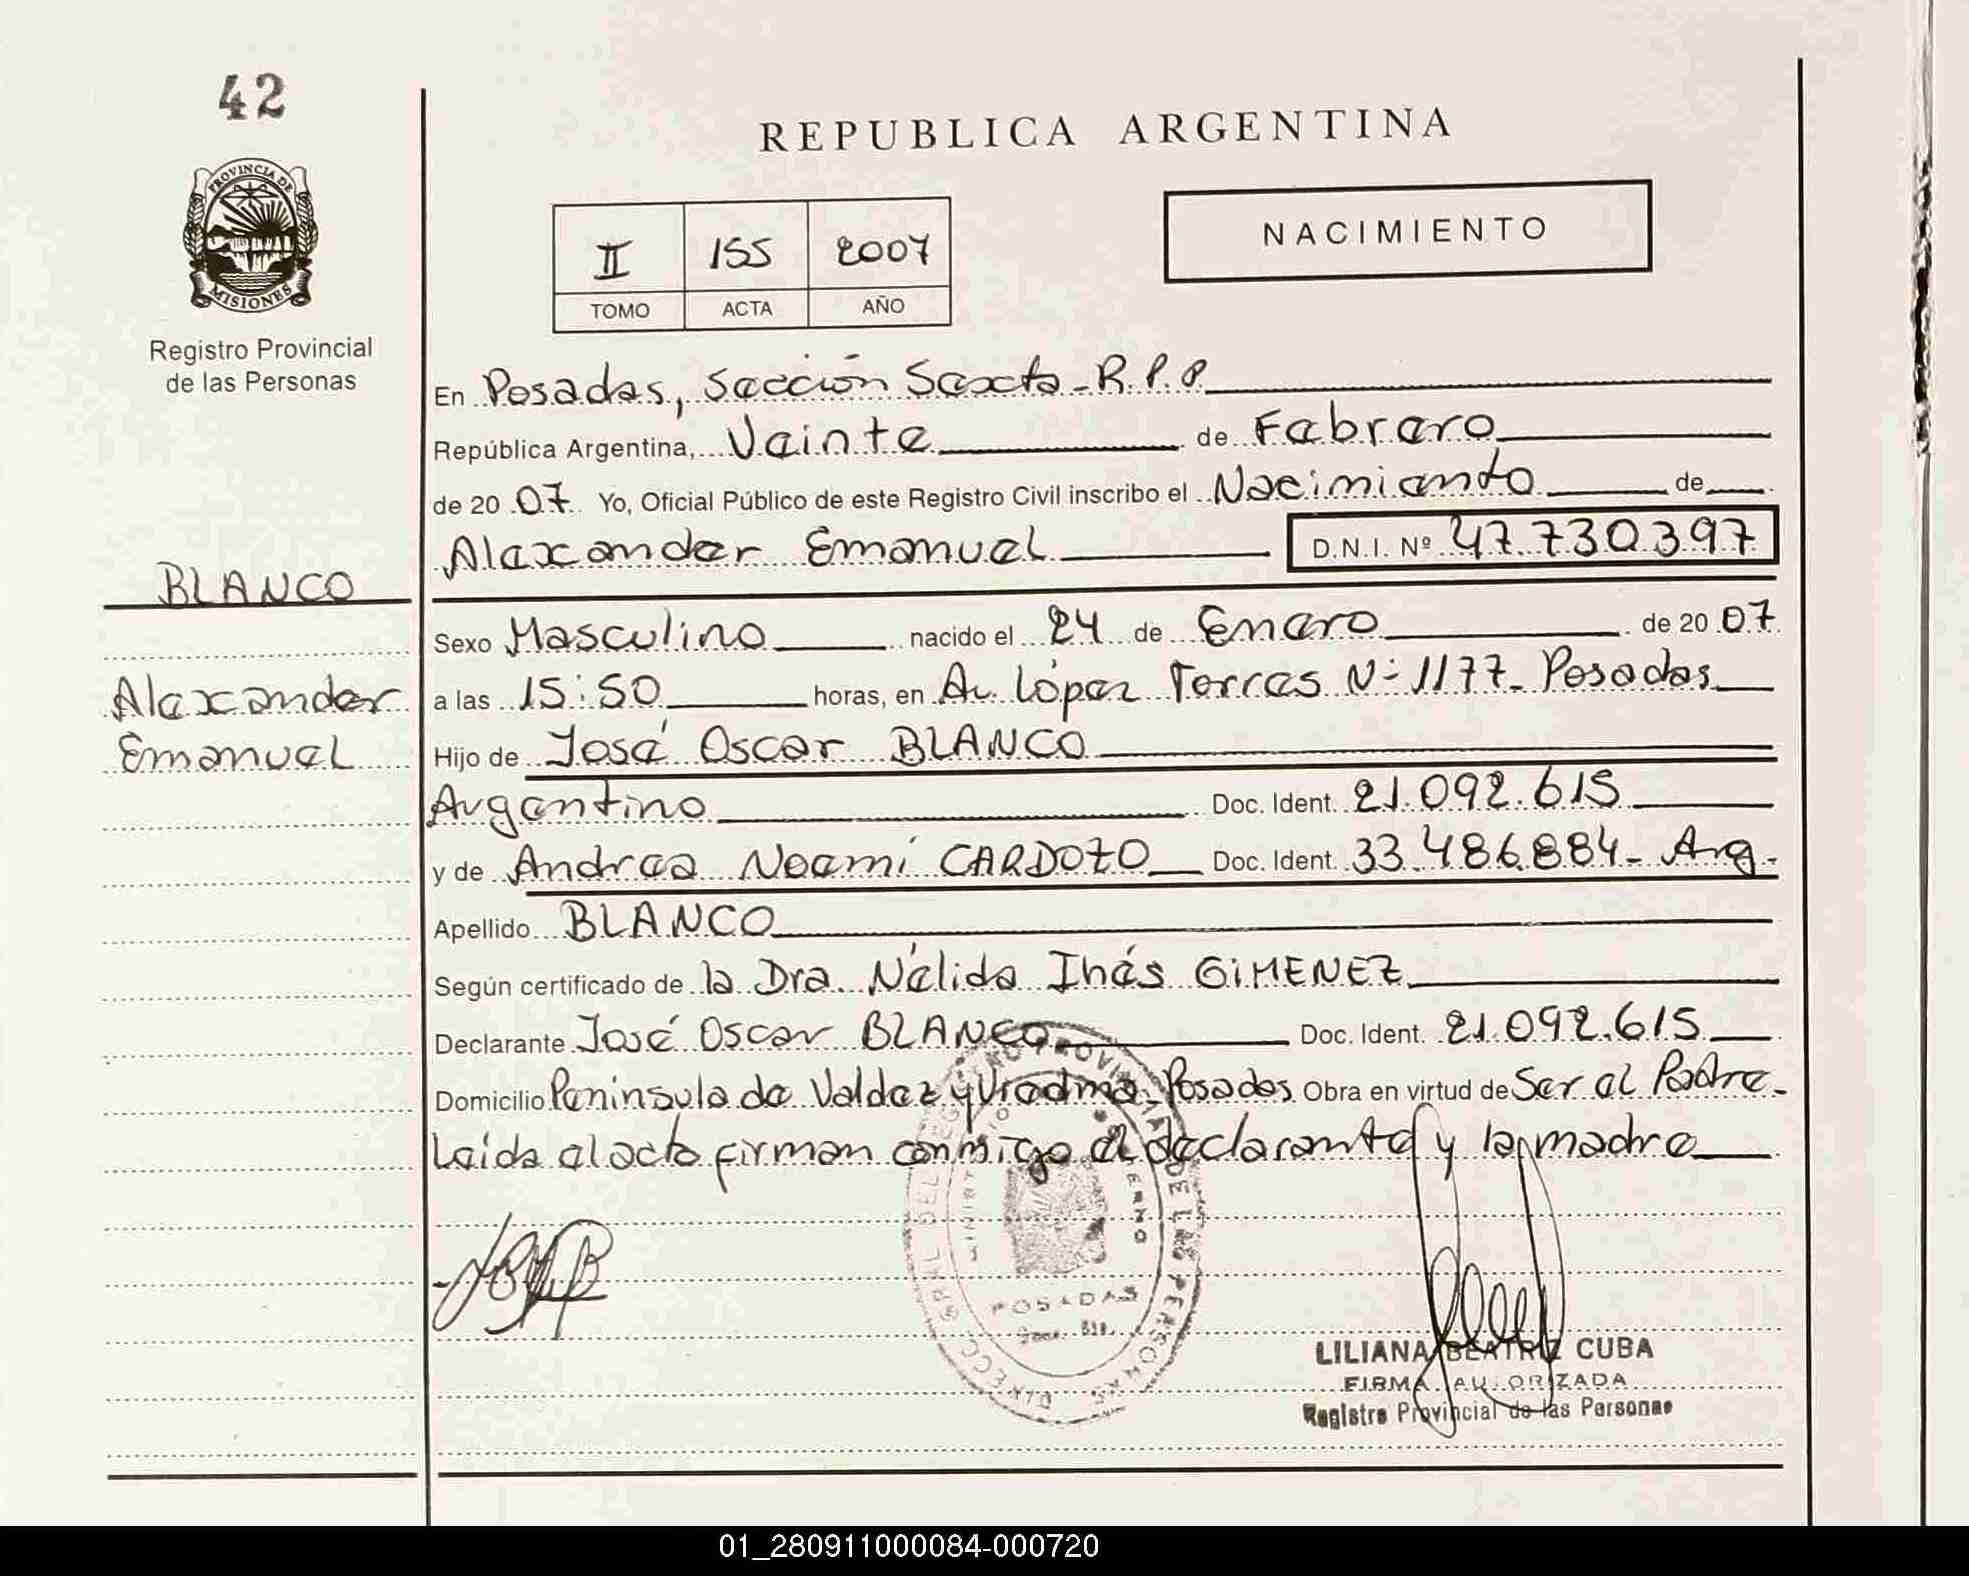 42
REPUBLICA ARGENTINA
PROVINCIA DE
MISIONES
Registro Provincial
de las Personas
II 155 2007
TOMO ACTA AÑO
NACIMIENTO
En Posadas, Sección Sexta - R.P.P.
República Argentina, Veinte de Febrero
de 20 07 Yo, Oficial Público de este Registro Civil inscribo el Nacimiento de
Alexander Emanuel D.N.I. Nº 47.730.397
BLANCO
Alexander
Emanuel
Sexo Masculino nacido el 24 de Enero de 20 07
a las 15:50 horas, en Av. López Torres N- 1177- Posadas
Hijo de José Oscar BLANCO
Argentino Doc. Ident. 21.092.615
y de Andrea Noemí CARDOZO Doc. Ident. 33.486.884- Arg.
Apellido BLANCO
Según certificado de la Dra. Nélida Inés GIMENEZ
Declarante José Oscar BLANCO Doc. Ident. 21.092.615
Domicilio Península de Valdez y Viedma- Posadas Obra en virtud de Ser el Padre-
Leída el acta firman conmigo el declarante y la madre
DIRECC. GRAL. DEL REGISTRO PROVINCIAL DE LAS PERSONAS
POSADAS
LILIANA BEATRIZ CUBA
FIRMA AUTORIZADA
Registro Provincial de las Personas
01_280911000084-000720